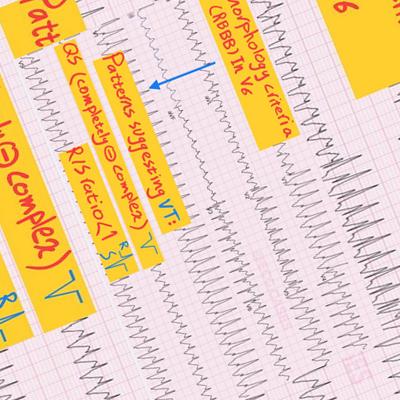 morphology criteria
(RBBB) in V6
Patterns suggesting VT:
QS (completely ⊖ complex)
R/S ratio<1
R
S
Patt
⊖ complex)
R
6